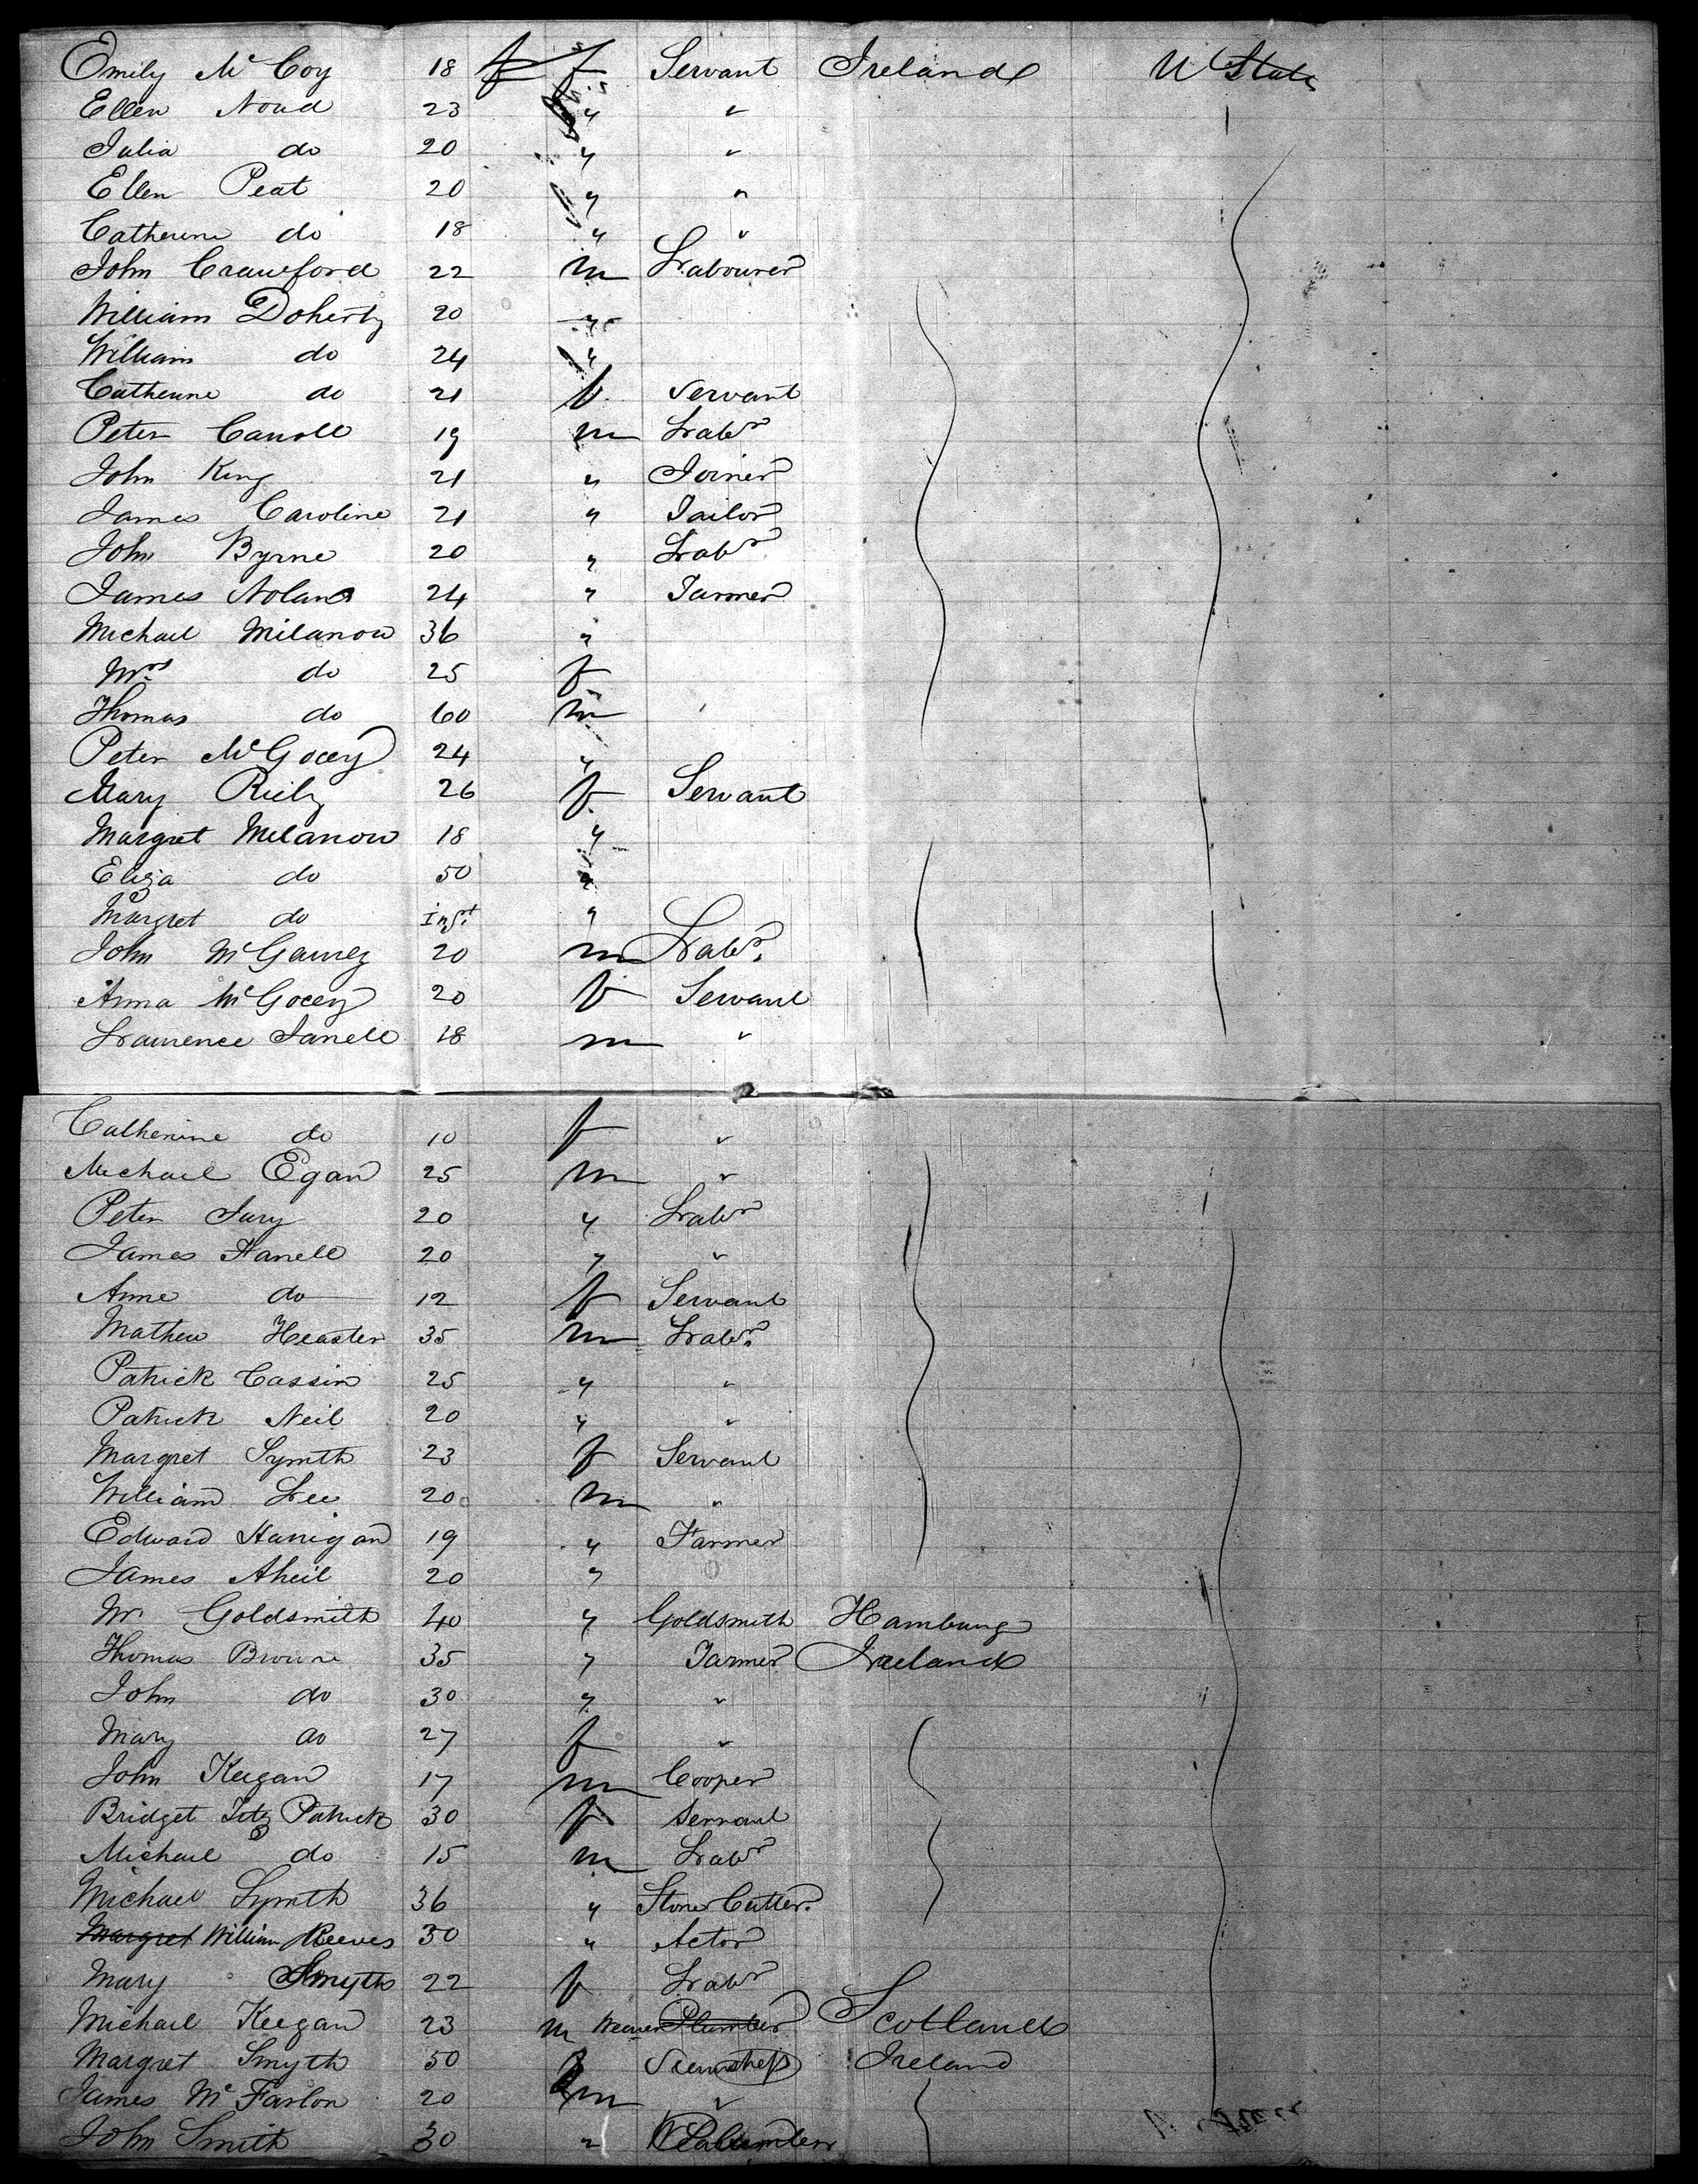 Emily McCoy 18 f f Servant Ireland U States
Ellen Noud 23 " "
Julia do 20 " "
Ellen Peat 20 " "
Catherine do 18 " "
John Crawford 22 m Labourer
William Doherty 20 "
William do 24 "
Catherine do 21 f Servant
Peter Carroll 19 m Labr
John King 21 " Joiner
James Caroline 21 " Tailor
John Byrne 20 " Labr
James Nolan 24 " Farmer
Michael Milanow 36 "
Mrs do 25 f
Thomas do 60 m
Peter McGocey 24 "
Mary Riely 26 f Servant
Margret Milanow 18 "
Eliza do 50 "
Margret do Inft "
John McGauley 20 m Labr.
Anna McGocey 20 f Servant
Lawrence Farrell 18 m "
Catherine do 10 f "
Michael Egan 25 m "
Peter Jury 20 " Labr
James Farrell 20 " "
Anne do 12 f Servant
Mathew Heaster 35 m Labr.
Patrick Cassin 25 " "
Patrick Neil 20 " "
Margret Symth 23 f Servant
William Lee 20 m "
Edward Hanigan 19 " Farmer
James Aheil 20 "
Mr Goldsmith 40 " Goldsmith Hamburg
Thomas Browne 35 " Farmer Ireland
John do 30 " "
Mary do 27 f "
John Keegan 17 m Cooper
Bridget Fitz Patrick 30 f Servant
Michael do 15 m Labr
Michael Symth 36 " Stone Cutter.
Margret William Reeves 30 " Actor
Mary Smyth 22 f Labr
Michael Keegan 23 m Weaver Plumber Scotland
Margret Smyth 50 f Ireland
James McFarlon 20 m "
John Smith 30 "